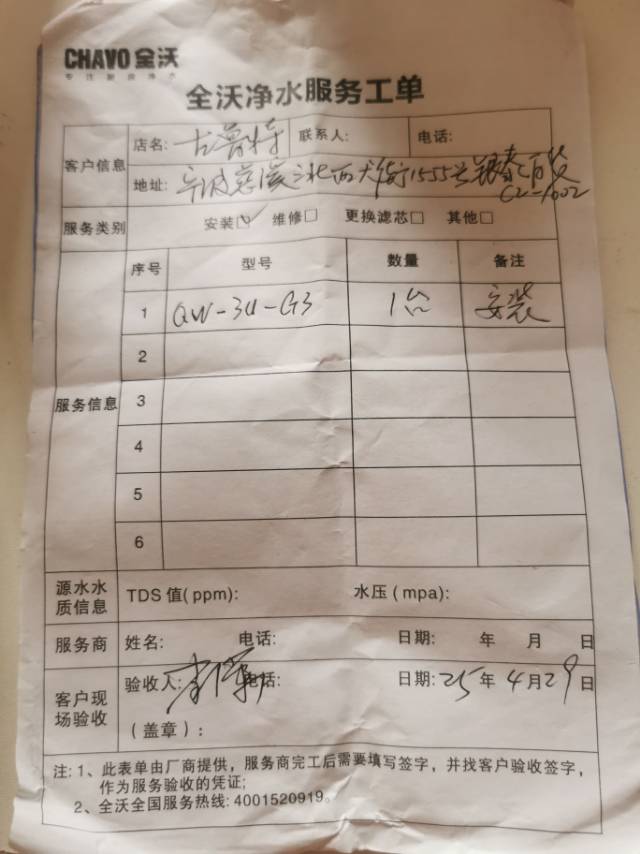 CHAVO 全沃
专注厨房净水
全沃净水服务工单
客户信息
店名: 古鲁特 联系人: 电话:
地址: 宁波慈溪 北 大街1555号 百货
CL-1002
服务类别 安装☑ 维修□ 更换滤芯□ 其他□
服务信息
序号 型号 数量 备注
1 QW-3U-G3 1台 安装
2
3
4
5
6
源水水质信息 TDS 值(ppm): 水压(mpa):
服务商 姓名: 电话: 日期: 年 月 日
客户现场验收
验收人: 电话: 日期: 25年 4月29日
(盖章):
注: 1、此表单由厂商提供，服务商完工后需要填写签字，并找客户验收签字，
作为服务验收的凭证;
2、全沃全国服务热线: 4001520919。